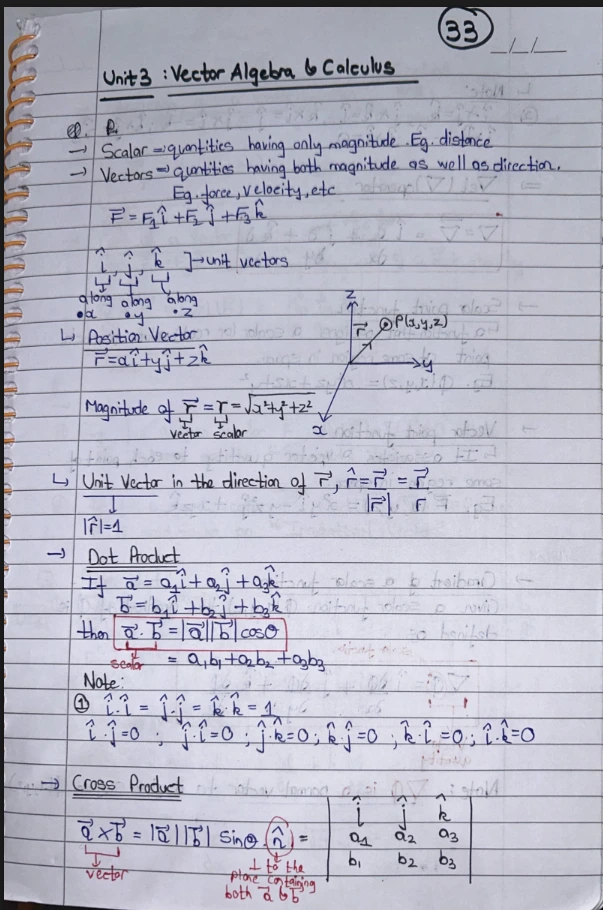 33
_/_/_
Unit 3 : Vector Algebra & Calculus
→ Scalar ⇒ quantities having only magnitude. Eg. distance
→ Vectors ⇒ quantities having both magnitude as well as direction.
Eg. force, velocity, etc
F⃗ = F₁î + F₂ĵ + F₃k̂
î, ĵ, k̂ ] → unit vectors
along along along
•x •y •z
↳ Position Vector
r⃗ = xî + yĵ + zk̂
z
r⃗
P(x,y,z)
y
x
Magnitude of r⃗ = r = √x²+y²+z²
vector scalar
↳ Unit Vector in the direction of r⃗, r̂ = r⃗/|r⃗| = r⃗/r
|r̂| = 1
→ Dot Product
If a⃗ = a₁î + a₂ĵ + a₃k̂
b⃗ = b₁î + b₂ĵ + b₃k̂
then a⃗ . b⃗ = |a⃗||b⃗| cosθ
scalar
= a₁b₁ + a₂b₂ + a₃b₃
Note:
① î.î = ĵ.ĵ = k̂.k̂ = 1
î.ĵ=0 ; ĵ.î=0 ; ĵ.k̂=0 ; k̂.ĵ=0 ; k̂.î=0 ; î.k̂=0
→ Cross Product
a⃗ × b⃗ = |a⃗||b⃗| sinθ . n̂ = | î ĵ k̂ |
| a₁ a₂ a₃ |
| b₁ b₂ b₃ |
vector
⊥ to the
plane containing
both a⃗ & b⃗